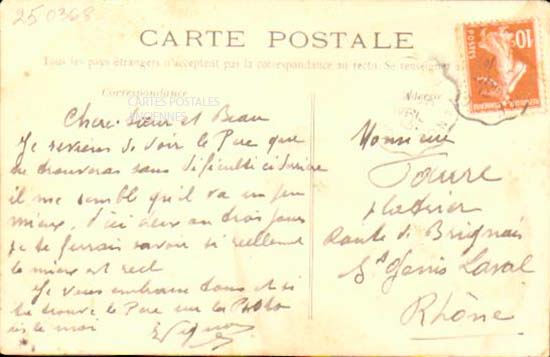 250368
CARTE POSTALE
Tous les pays étrangers n'acceptent pas la correspondance au recto. Se renseigner
Correspondance
Adresse
CARTES POSTALES
ANCIENNES
10
POSTES
Chère Sœur et Beau
Je reviens de voir le Père que
tu trouveras sans difficulté ci derrière
il me semble qu'il va un peu
mieux, d'ici deux au trois jours
je te ferrais savoir si réellement
le mieux est réel
Je vous embrasse tous et si
tu trouve le Père sur la Photo
dis le moi
Monsieur
Faure
platrier
Route de Brignais
St Genis Laval
Rhône